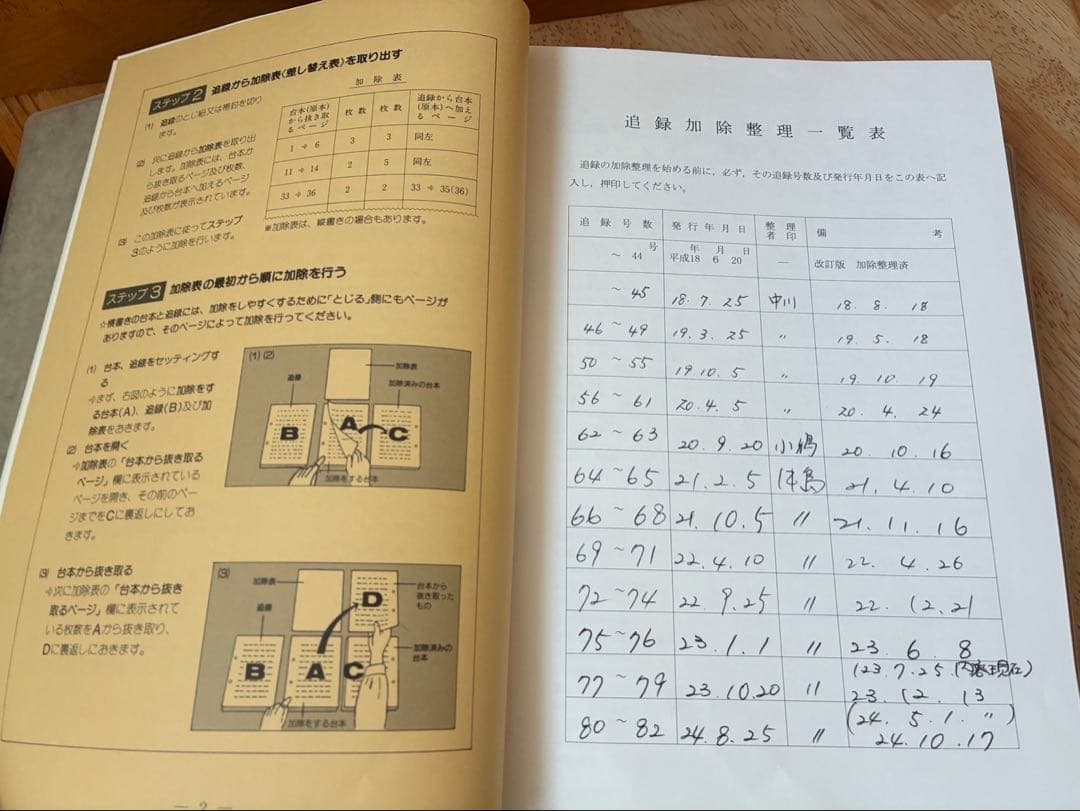 ステップ2 追録から加除表(差し替え表)を取り出す
(1) 追録のとじ紐又は帯封を切り
ます。
(2) 次に追録から加除表を取り出
します。加除表には、台本か
ら抜き取るページ及び枚数、
追録から台本へ加えるページ
及び枚数が表示されています。
(3) この加除表に従ってステップ
3のように加除を行います。
加 除 表
台本(原本)から抜き取るページ 枚数 枚数 追録から台本(原本)へ加えるページ
1 ÷ 6 3 3 同左
11 ÷ 14 2 5 同左
33 ÷ 36 2 2 33 ÷ 35(36)
※加除表は、縦書きの場合もあります。
ステップ3 加除表の最初から順に加除を行う
☆横書きの台本と追録には、加除をしやすくするために「とじる」側にもページが
ありますので、そのページによって加除を行ってください。
(1) 台本、追録をセッティングす
る
⇨まず、右図のように加除をす
る台本(A)、追録(B)及び加
除表をおきます。
(2) 台本を開く
⇨加除表の「台本から抜き取る
ページ」欄に表示されている
ページを開き、その前のペー
ジまでをCに裏返しにしてお
きます。
(1)(2)
加除表
追録
加除済みの台本
B A C
加除をする台本
(3) 台本から抜き取る
⇨次に加除表の「台本から抜き
取るページ」欄に表示されて
いる枚数をAから抜き取り、
Dに裏返しにおきます。
(3)
加除表
台本から
抜き取った
もの
追録
D
加除済みの
台本
B A C
加除をする台本
― 2 ―
追録加除整理一覧表
追録の加除整理を始める前に、必ず、その追録号数及び発行年月日をこの表へ記
入し、押印してください。
追録号数 発行年月日 整理者印 備考
～ 44 号 平成18年 6月 20日 ― 改訂版 加除整理済
～ 45 18. 7. 25 中川 18. 8. 18
46 ～ 49 19. 3. 25 〃 19. 5. 18
50 ～ 55 19. 10. 5 〃 19. 10. 19
56 ～ 61 20. 4. 5 〃 20. 4. 24
62 ～ 63 20. 9. 20 20. 10. 16
64 ～ 65 21. 2. 5 21. 4. 10
66 ～ 68 21. 10. 5 〃 21. 11. 16
69 ～ 71 22. 4. 10 〃 22. 4. 26
72 ～ 74 22. 9. 25 〃 22. 12. 21
75 ～ 76 23. 1. 1 〃 23. 6. 8
77 ～ 79 23. 10. 20 〃 (23. 7. 25 現在)
23. 12. 13
80 ～ 82 24. 8. 25 〃 (24. 5. 1. 〃)
24. 10. 17